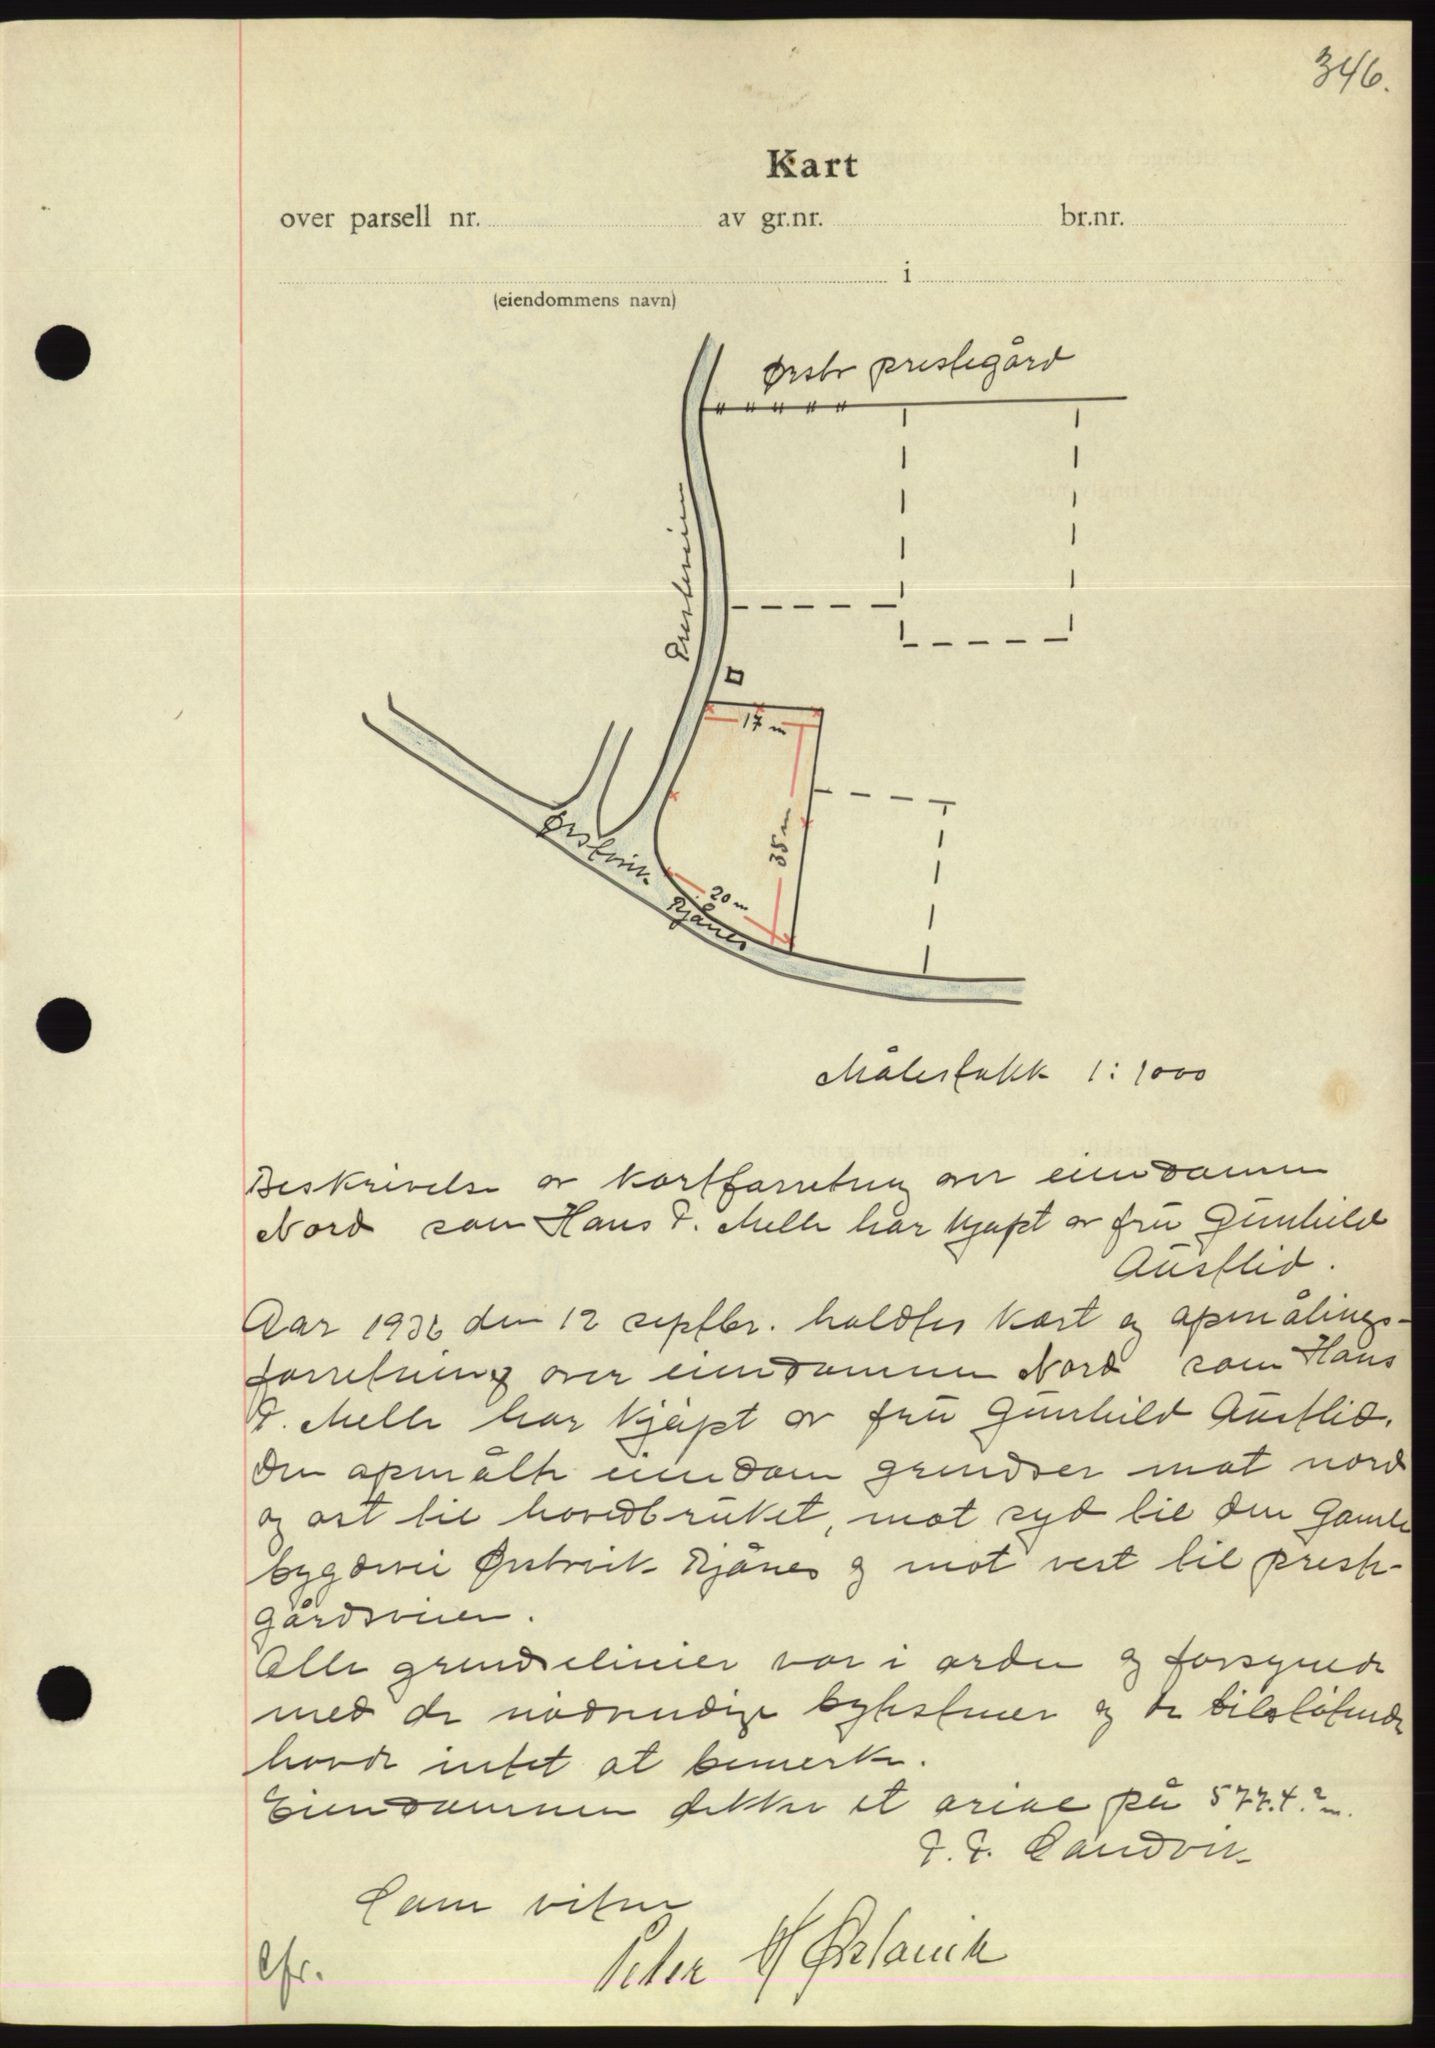 346.
Kart
over parsell nr. av gr.nr. br.nr.
i
(eiendommens navn)
Ørstv prestegård
Presteveien
17 m
35 m
20 m
Ørstvik
Rjånes
Målestokk 1:1000
Beskrivelse av kartforretning over eiendommen
Nord som Hans P. Melle har kjøpt av fru Gunhild
Aüstlid.
Aar 1936 den 12 septbr. holdtes kart og opmålings-
forretning over eiendommen Nord som Hans
P. Melle har kjøpt av fru Gunhild Austlid.
Den opmålte eiendom grendser mot nord
og ost til hovedbruket, mot syd til den Gamle
bygdevei Ørstvik Rjånes og mot vest til preste-
gårdsveien.
Alle grendselinier var i orden og forsynede
med de nødvendige bytestener og de tilstøtende
havde intet at bemerke.
Eiendommen dekker et areal på 577.4 m².
P. P. Landvik
Som vitne
Peter H Ørstavik
Cfr.